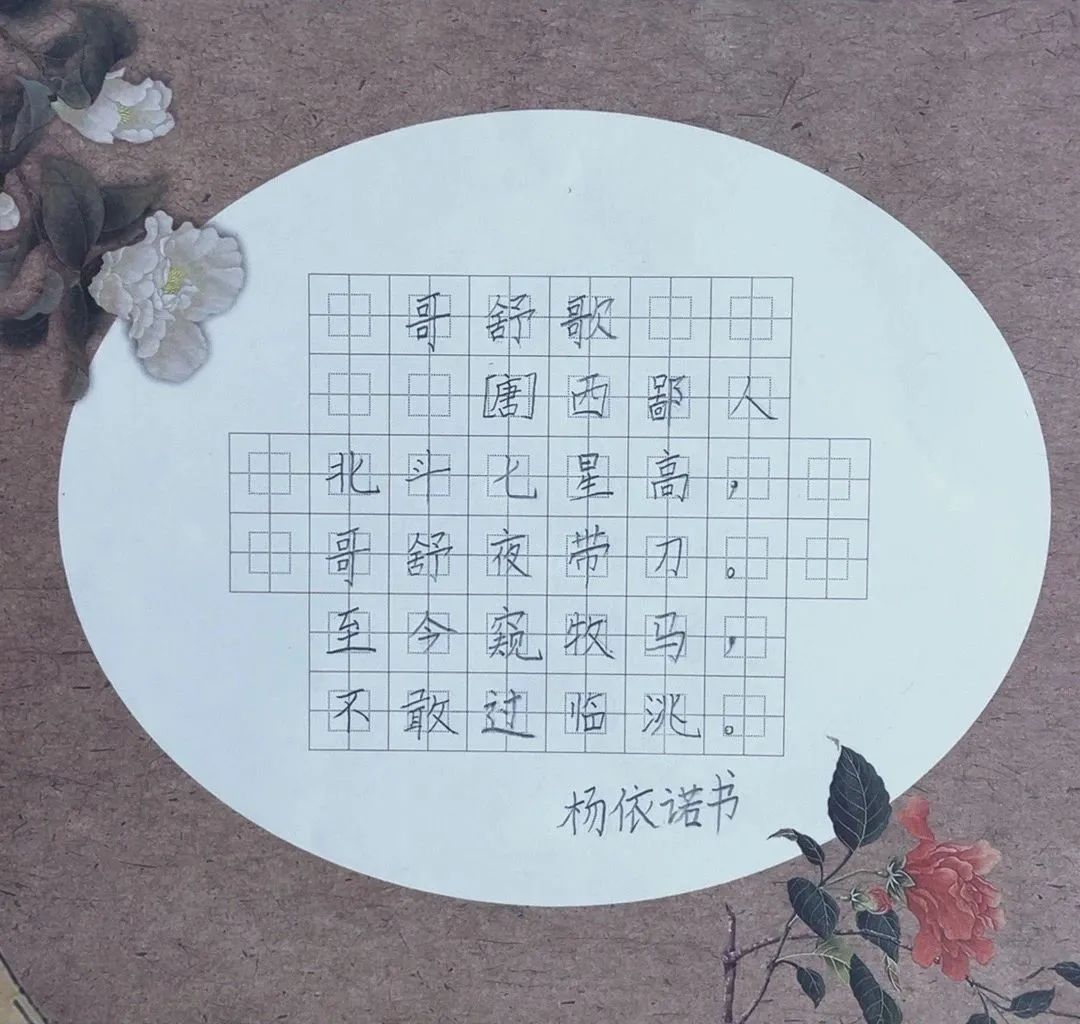 哥舒歌
[唐]西鄙人
北斗七星高，
哥舒夜带刀。
至今窥牧马，
不敢过临洮。
杨依诺书